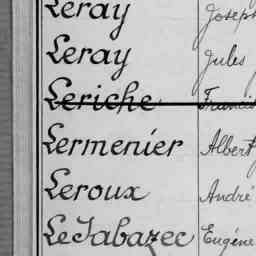 Leray Joseph
Leray Jules
Leriche Francis
Lermenier Albert
Leroux André
Le Tabazec Eugène